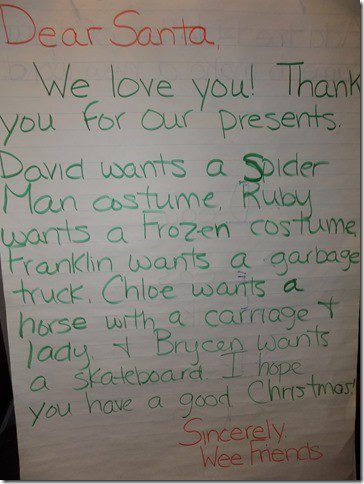 Dear Santa,
We love you! Thank
you for our presents.
David wants a Spider
Man costume, Ruby
wants a Frozen costume,
Franklin wants a garbage
truck, Chloe wants a
horse with a carriage +
lady, + Brycen wants
a skateboard. I hope
you have a good Christmas!
Sincerely,
Wee Friends